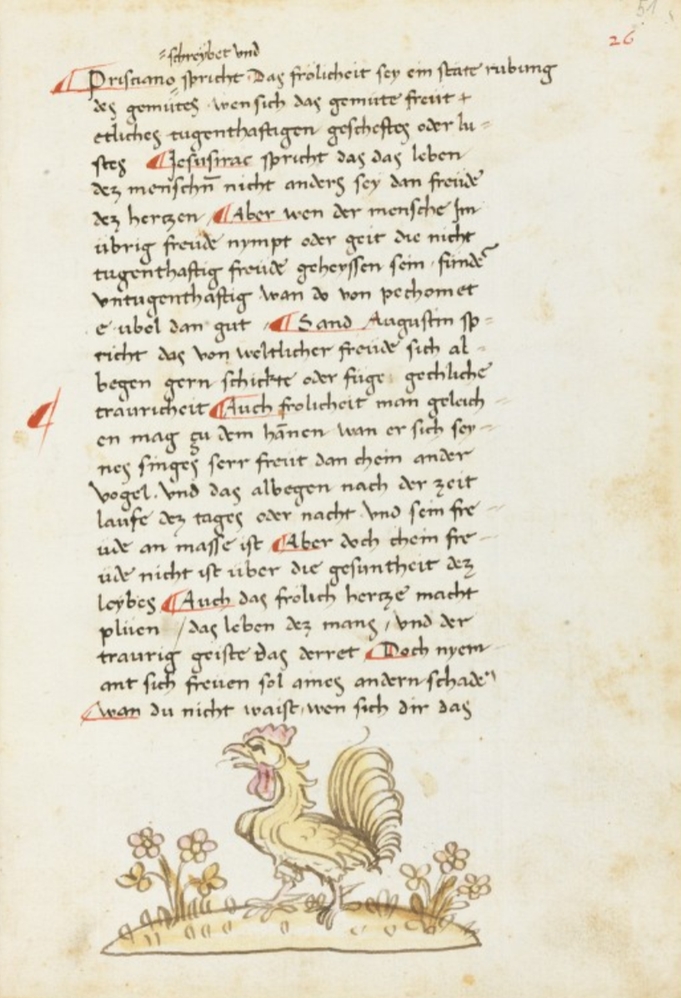 51
26
schreybet vnd
Prisciano spricht Das frolicheit sey ein state rübung
dez gemütes wen sich das gemüte freüt
etliches tugenthaftigen gescheftes oder lu=
stes Jesusirac spricht das das leben
dez menschn̄ nicht anders sey dan freüde
dez hertzen Aber wen der mensche Im
übrig freüde nympt oder geit die nicht
tugenthaftig freüde geheyssen sein sunder
vntugenthaftig wan do von pechomet
e übel dan gut Sand Augustin sp=
richt das von weltlicher freüde sich al=
begen gern schickte oder füge gechliche
trauricheit Auch frolicheit man geleich=
en mag zu dem hānen wan er sich sey=
nes singes serr freüt dan chein ander
vogel. vnd das albegen nach der zeit
laufe dez tages oder nacht vnd sein fre=
üde an masse ist Aber doch chein fre=
üde nicht ist über die gesuntheit dez
leybes Auch das frolich hertze macht
plüen / das leben dez mans, vnd der
traurig geiste das derret Doch nyem=
ant sich freüen sol aines andern schade
wan du nicht waist wen sich dir das